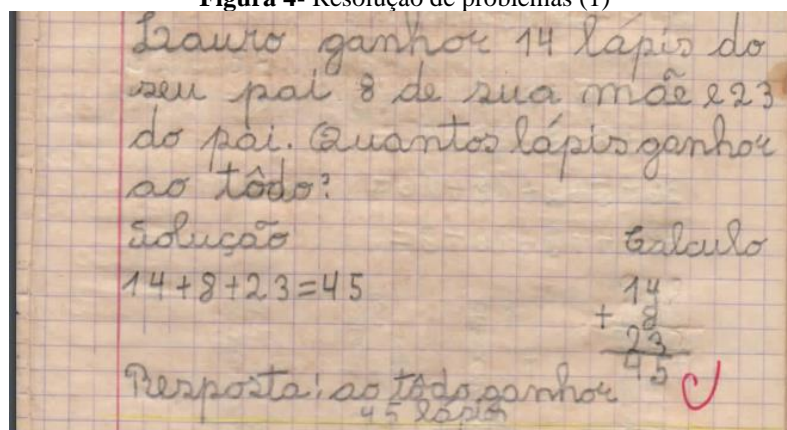 Figura 4- Resolução de problemas (1)
Lauro ganhou 14 lápis do
seu pai 8 de sua mãe e 23
do pai. Quantos lápis ganhou
ao tôdo?
Solução
Calculo
14+8+23=45
14
+ 8
23
45
Resposta: ao tôdo ganhou
45 lápis